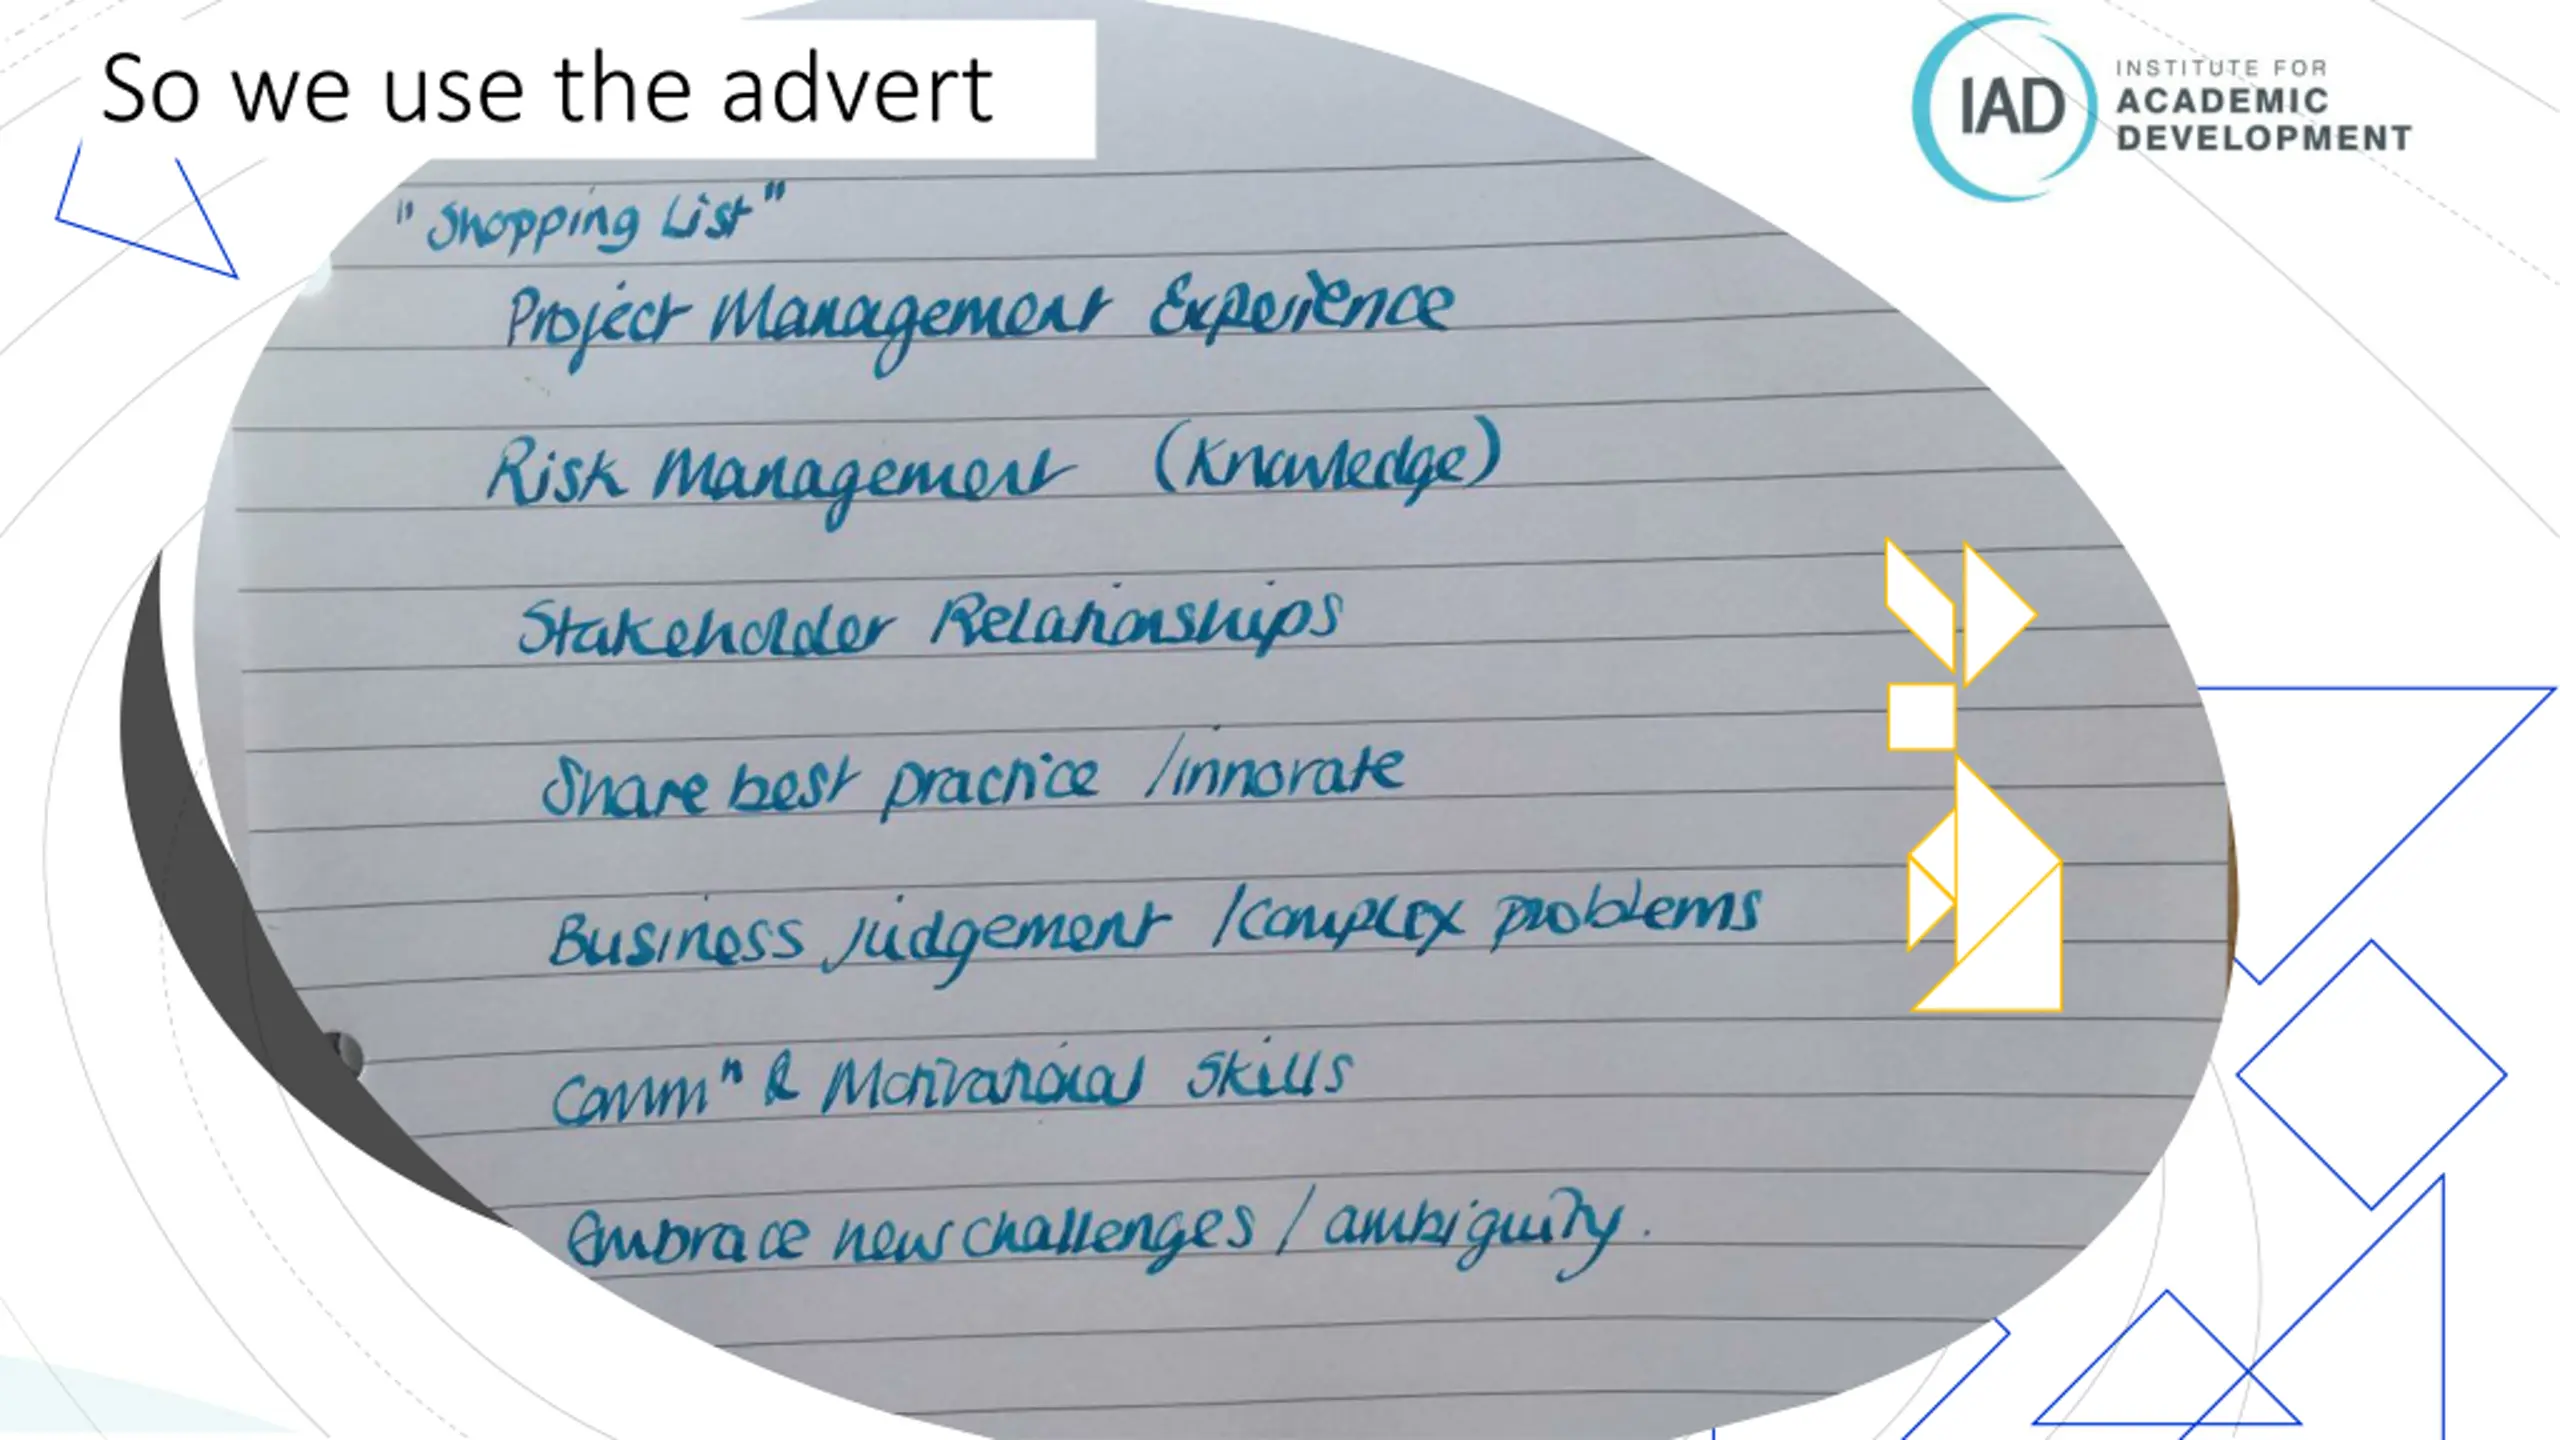 So we use the advert
IAD
INSTITUTE FOR
ACADEMIC
DEVELOPMENT
"Shopping List"
Project Management Experience
Risk Management (Knowledge)
Stakeholder Relationships
Share best practice /innovate
Business judgement /complex problems
Commⁿ & Motivational Skills
Embrace new challenges / ambiguity.